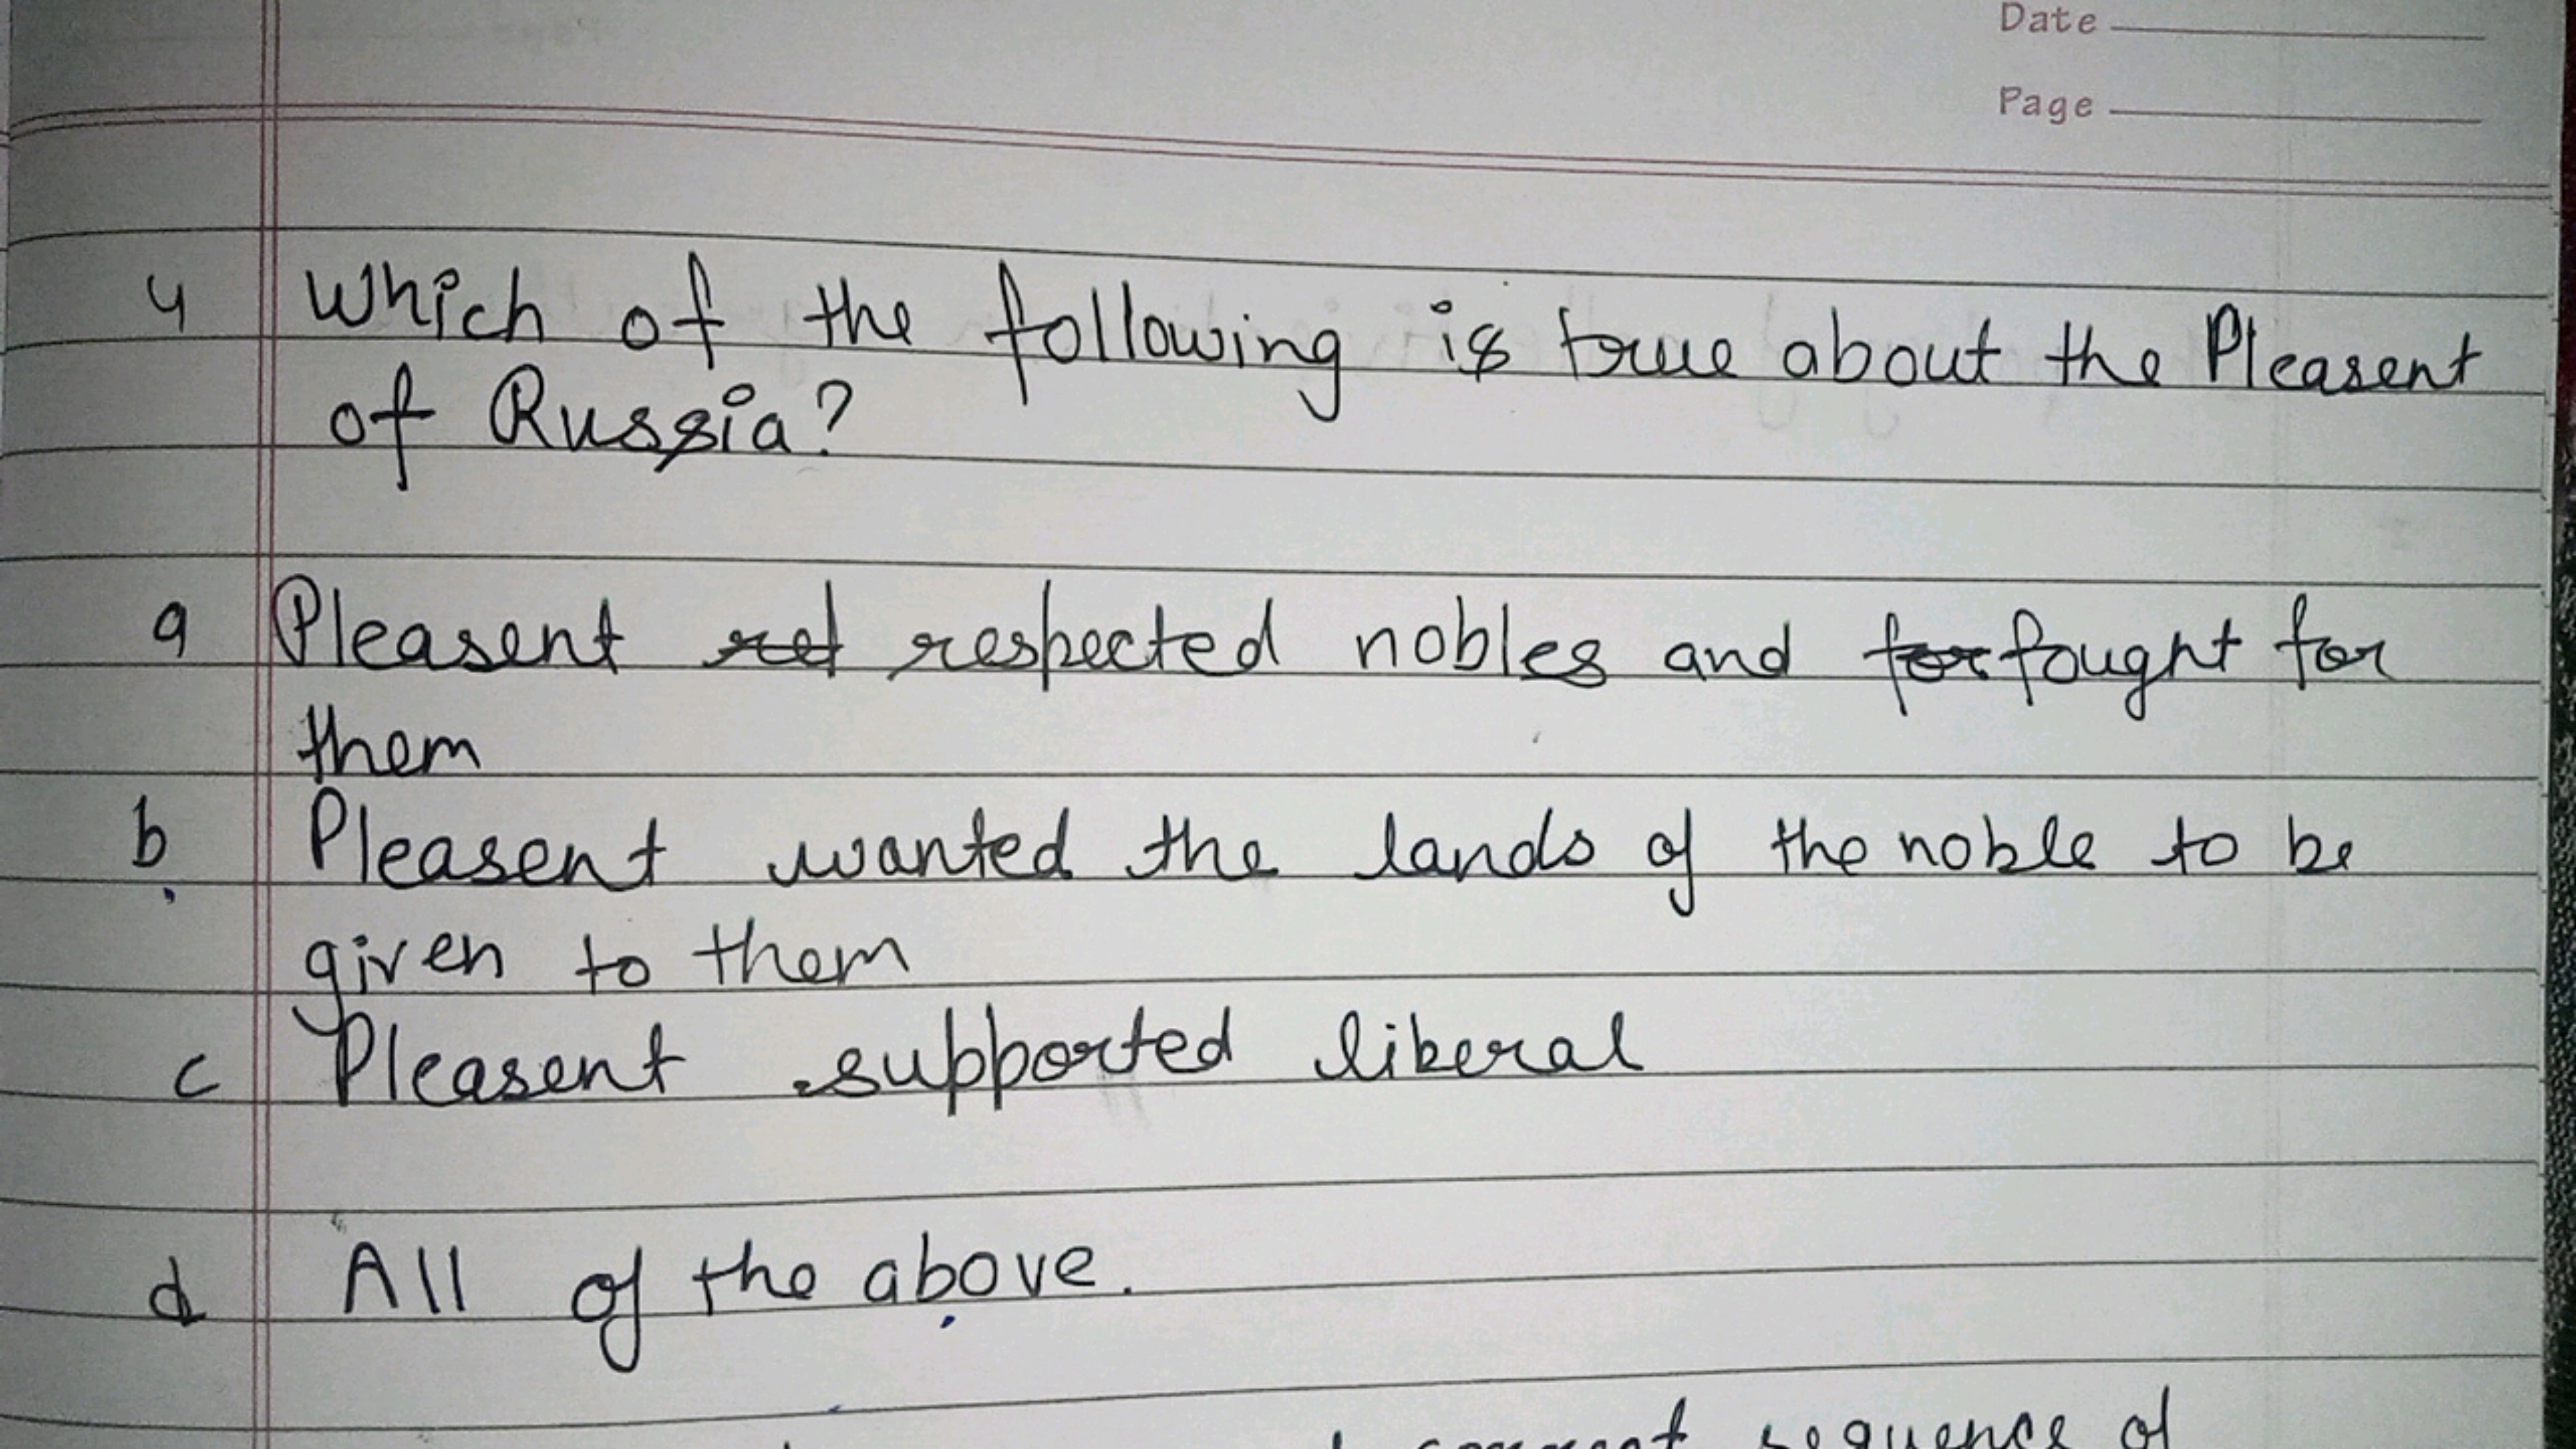 Date
Page
4 Which of the following is true about the Pleasent
of Russia?
a Pleasent ret respected nobles and for fought for
them
b Pleasent wanted the lands of the noble to be
given to them
c Pleasent supported liberal
d All of the above.
sequence of